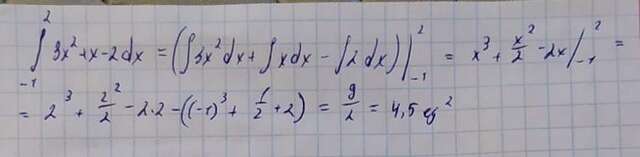 ∫₋₁² 3x² + x - 2 dx = (∫3x² dx + ∫x dx - ∫2 dx)|₋₁² = x³ + x²/2 - 2x|₋₁² =
= 2³ + 2²/2 - 2·2 - ((-1)³ + 1/2 + 2) = 9/2 = 4,5 eg²